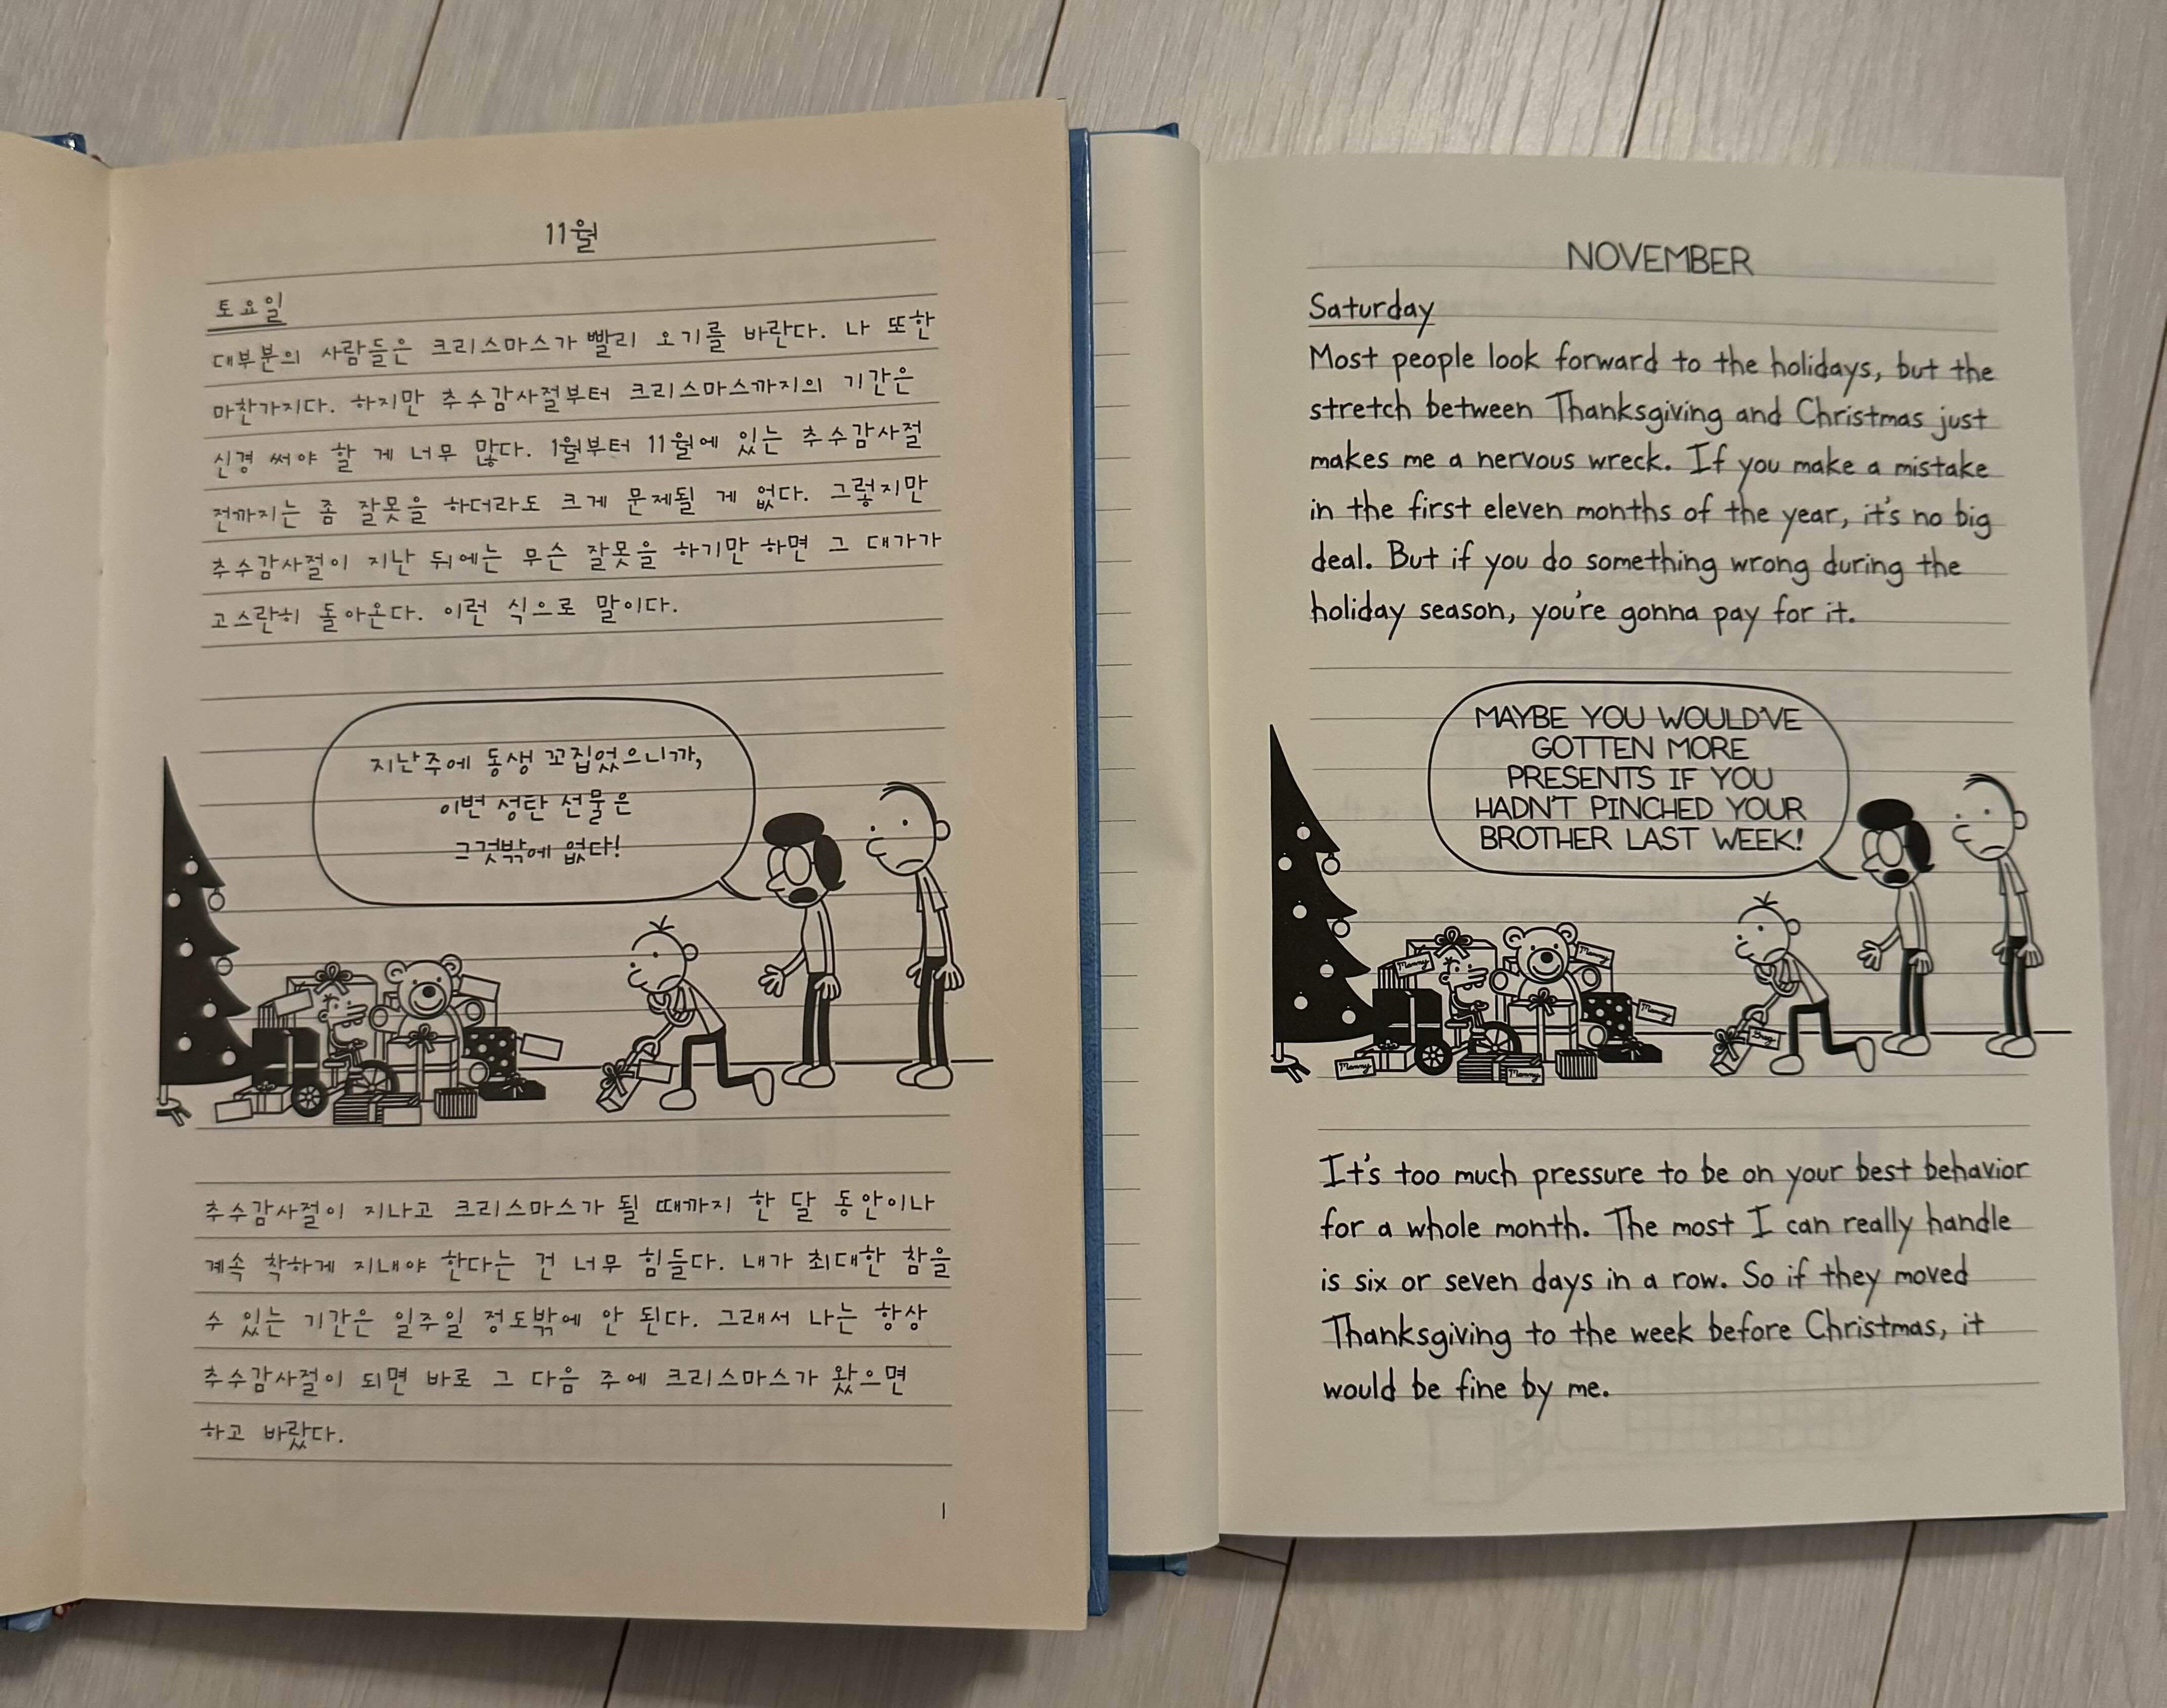 11월
토요일
대부분의 사람들은 크리스마스가 빨리 오기를 바란다. 나 또한
마찬가지다. 하지만 추수감사절부터 크리스마스까지의 기간은
신경 써야 할 게 너무 많다. 1월부터 11월에 있는 추수감사절
전까지는 좀 잘못을 하더라도 크게 문제될 게 없다. 그렇지만
추수감사절이 지난 뒤에는 무슨 잘못을 하기만 하면 그 대가가
고스란히 돌아온다. 이런 식으로 말이다.
지난주에 동생 꼬집었으니까,
이번 성탄 선물은
그것밖에 없다!
추수감사절이 지나고 크리스마스가 될 때까지 한 달 동안이나
계속 착하게 지내야 한다는 건 너무 힘들다. 내가 최대한 참을
수 있는 기간은 일주일 정도밖에 안 된다. 그래서 나는 항상
추수감사절이 되면 바로 그 다음 주에 크리스마스가 왔으면
하고 바랐다.
1
NOVEMBER
Saturday
Most people look forward to the holidays, but the
stretch between Thanksgiving and Christmas just
makes me a nervous wreck. If you make a mistake
in the first eleven months of the year, it's no big
deal. But if you do something wrong during the
holiday season, you're gonna pay for it.
MAYBE YOU WOULD'VE
GOTTEN MORE
PRESENTS IF YOU
HADN'T PINCHED YOUR
BROTHER LAST WEEK!
Manny
Manny
Manny
Manny
Manny
Greg
It's too much pressure to be on your best behavior
for a whole month. The most I can really handle
is six or seven days in a row. So if they moved
Thanksgiving to the week before Christmas, it
would be fine by me.